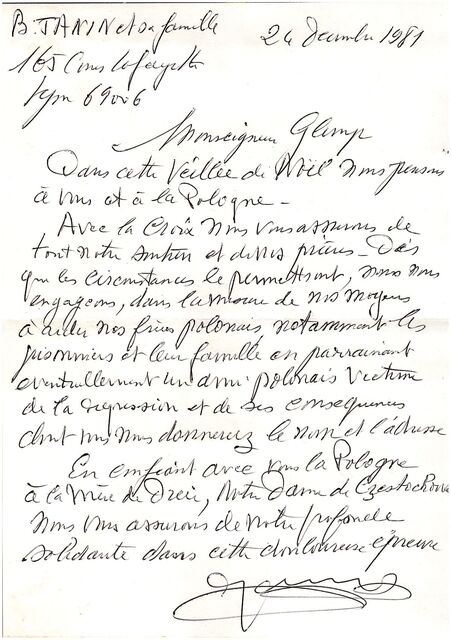 B. JANIN et sa famille
24 décembre 1981
165 Cours Lafayette
Lyon 69006
Monseigneur Glemp
Dans cette Veillée de Noël nous pensons
à vous et à la Pologne -
Avec la Croix nous vous assurons de
tout notre soutien et de nos prières - Dès
que les circonstances le permettront, nous nous
engageons, dans la mesure de nos moyens
à aider nos frères polonais notamment les
prisonniers et leur famille en parrainant
éventuellement un ami polonais victime
de la répression et de ses conséquences
dont vous nous donnerez le nom et l'adresse
En confiant avec vous la Pologne
à la Mère de Dieu, Notre Dame de Czestochowa
nous vous assurons de notre profonde
solidarité dans cette douloureuse épreuve